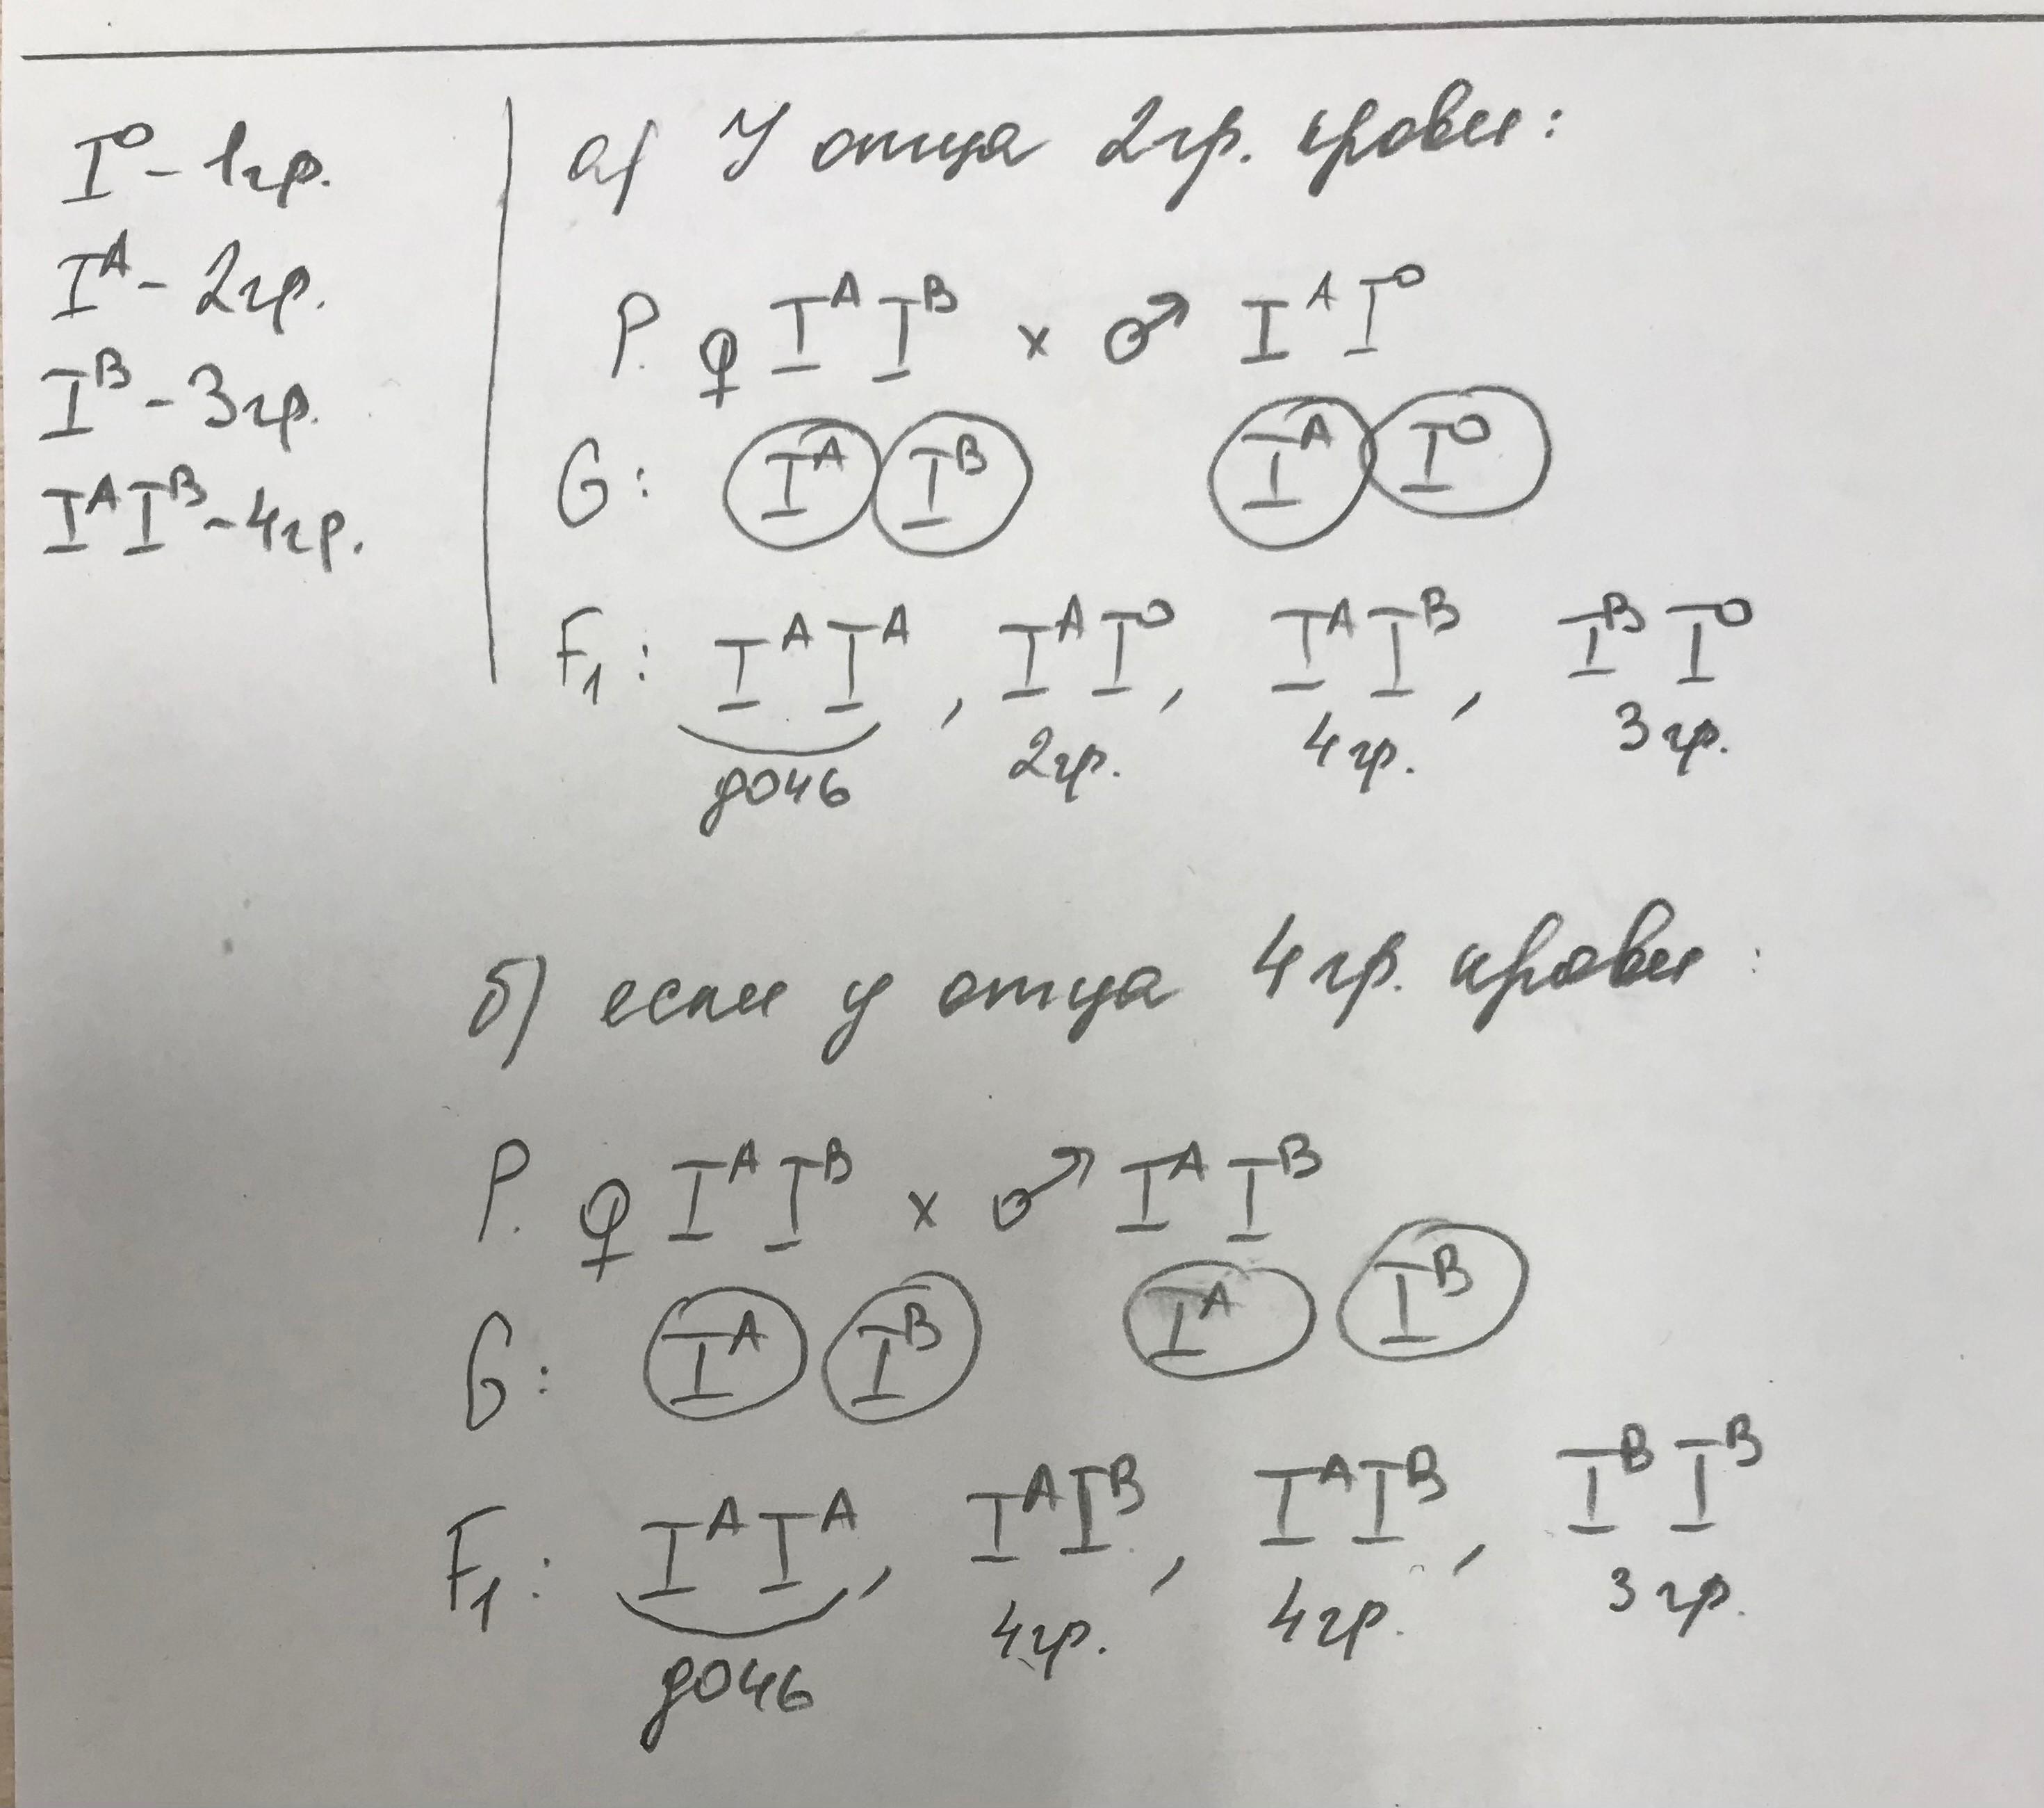 I⁰ - 1гр.
Iᴬ - 2гр.
Iᴮ - 3гр.
IᴬIᴮ - 4гр.
а) У отца 2гр. крови:
P. ♀ IᴬIᴮ x ♂ IᴬI⁰
G: Iᴬ Iᴮ Iᴬ I⁰
F₁: IᴬIᴬ, IᴬI⁰, IᴬIᴮ, IᴮI⁰
дочь 2гр. 4гр. 3гр.
б) если у отца 4гр. крови:
P. ♀ IᴬIᴮ x ♂ IᴬIᴮ
G: Iᴬ Iᴮ Iᴬ Iᴮ
F₁: IᴬIᴬ, IᴬIᴮ, IᴬIᴮ, IᴮIᴮ
дочь 4гр. 4гр. 3гр.